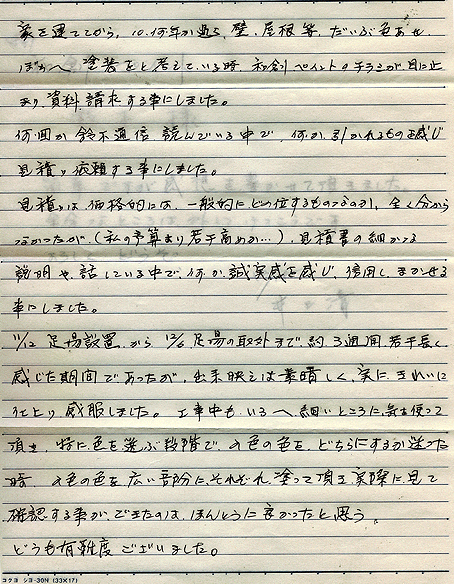 家を建ててから、10何年か過ぎ、壁、屋根等 だいぶ色あせ、
ぼちぼち 塗装をと考えている時、和創ペイントのチラシが目に止
まり、資料請求する事にしました。
何回か鈴木通信 読んでいる中で、何か引かれるものを感じ
見積り依頼する事にしました。
見積りは価格的には、一般的にどの位するものなのか、全く分から
なかったが(私の予算より若干高めか…)、見積書の細かな
説明や、話している中で、何か誠実感を感じ、信用し、まかせる
事にしました。
11/12 足場設置 から 12/6 足場の取外まで、約3週間 若干長く
感じた期間であったが、出来映えは素晴しく、実に きれいに
仕上り、感服しました。 工事中も いろいろ細いところに気を使って
頂き、特に色を選ぶ段階で、2色の色を、どちらにするか迷った
時 2色の色を広い部分に、それぞれ 塗って頂き 実際に見て
確認する事ができたのは、ほんとうに良かったと思う。
どうも有難度ございました。
コクヨ シヨ-30N (33×17)